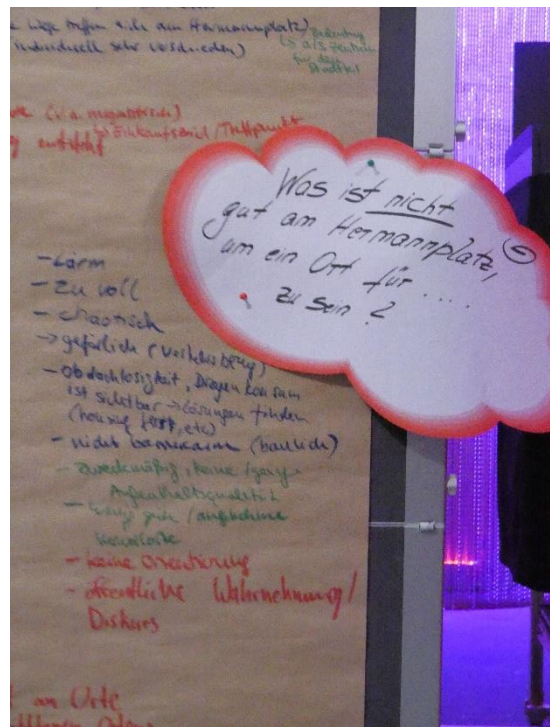 Wege treffen sich am Hermannplatz)
individuell sehr verschieden)
als Zentrum
für den
Stadtteil
Einkaufsziel / Treffpunkt
entsteht
Was ist nicht
gut am Hermannplatz,
um ein Ort für ....
zu sein?
- Lärm
- zu voll
- chaotisch
-> gefärlich (Verkehrsbezug)
- Obdachlosigkeit, Drogenkonsum
ist sichtbar -> Lösungen finden
(housing first, etc)
- nicht barrierearm (baulich)
- zweckmäßig, keine
Aufenthaltsqualität
- wenig grün / angenehme
- keine Orientierung
- öffentliche Wahrnehmung /
Diskurs
an Orte